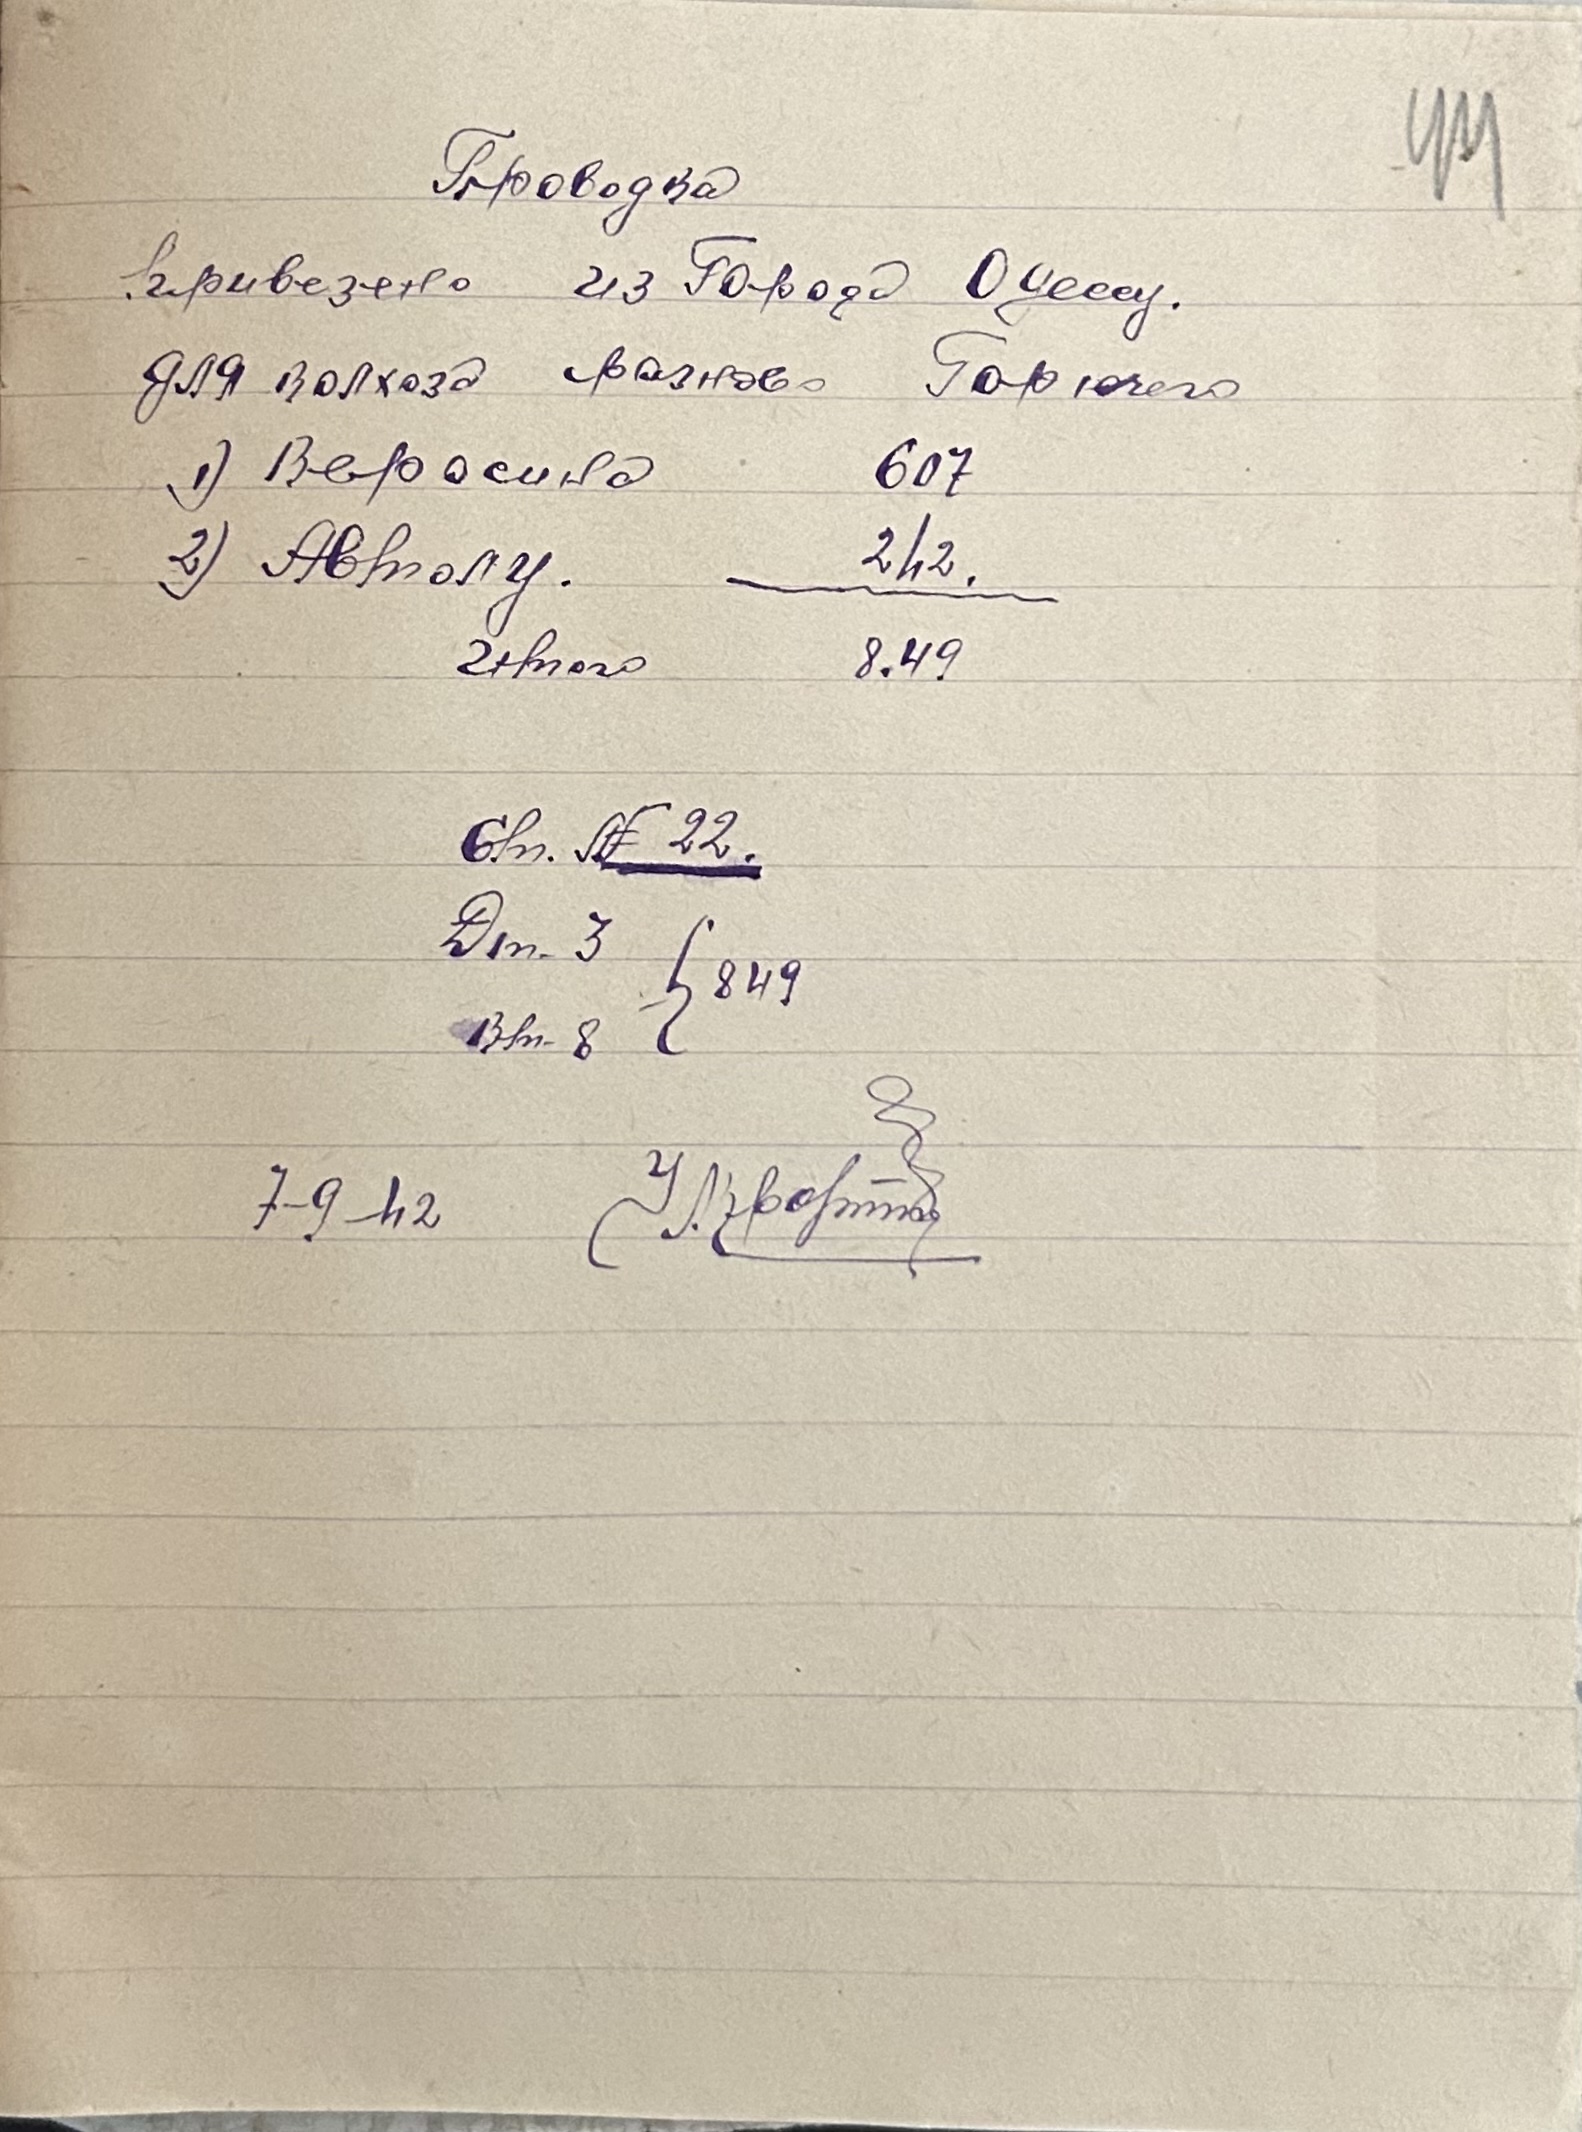 44
Проводка
Привезено из Города Одессу.
для колхоза разново Горючего
1) Керосина 607
2) Автолу. 242.
Итого 8.49
Ст. № 22.
Дт. 3
849
Кт. 8
7-9-42